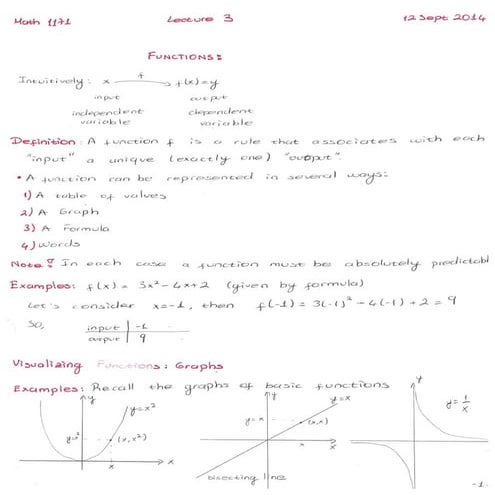 Math 1171 Lecture 3 12 Sept 2014
FUNCTIONS:
Intuitively: x f f(x)=y
input output
independent dependent
variable variable
Definition: A function f is a rule that associates with each
"input" a unique (exactly one) "output".
• A function can be represented in several ways:
1) A table of values
2) A Graph
3) A Formula
4) Words
Note: In each case a function must be absolutely predictabl
Examples: f(x) = 3x²-4x+2 (given by formula)
Let's consider x=-1, then f(-1) = 3(-1)²-4(-1)+2 = 9
So, input | -1
output | 9
Visualizing Functions: Graphs
Examples: Recall the graphs of basic functions
y y=x² y=x² (x,x²) x x
y y=x y=x (x,x) x x bisecting line
y y=1/x x
-1-